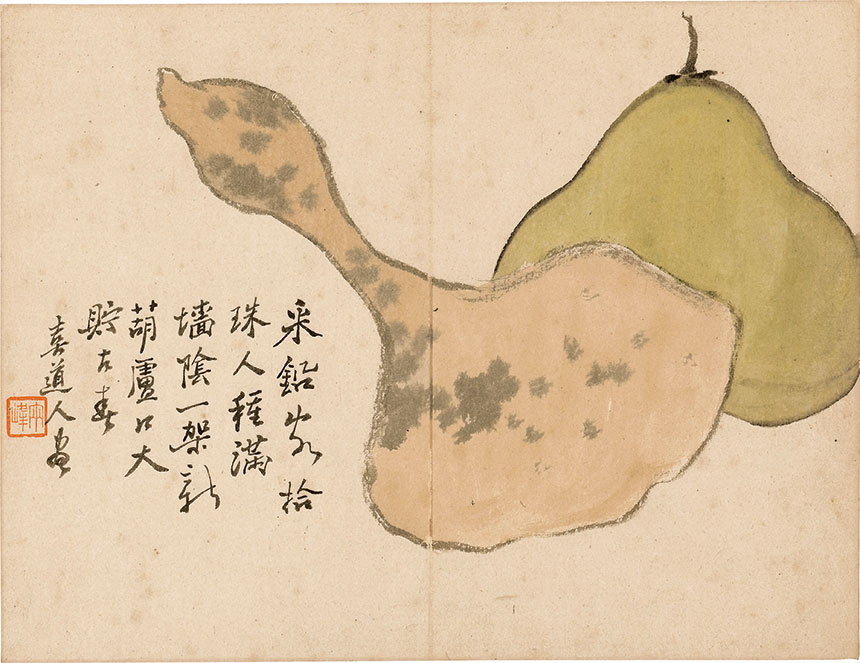 采鉛拾
珠人種滿
墻陰一架新
葫蘆口大
貯古春
喜道人畫
兩峰